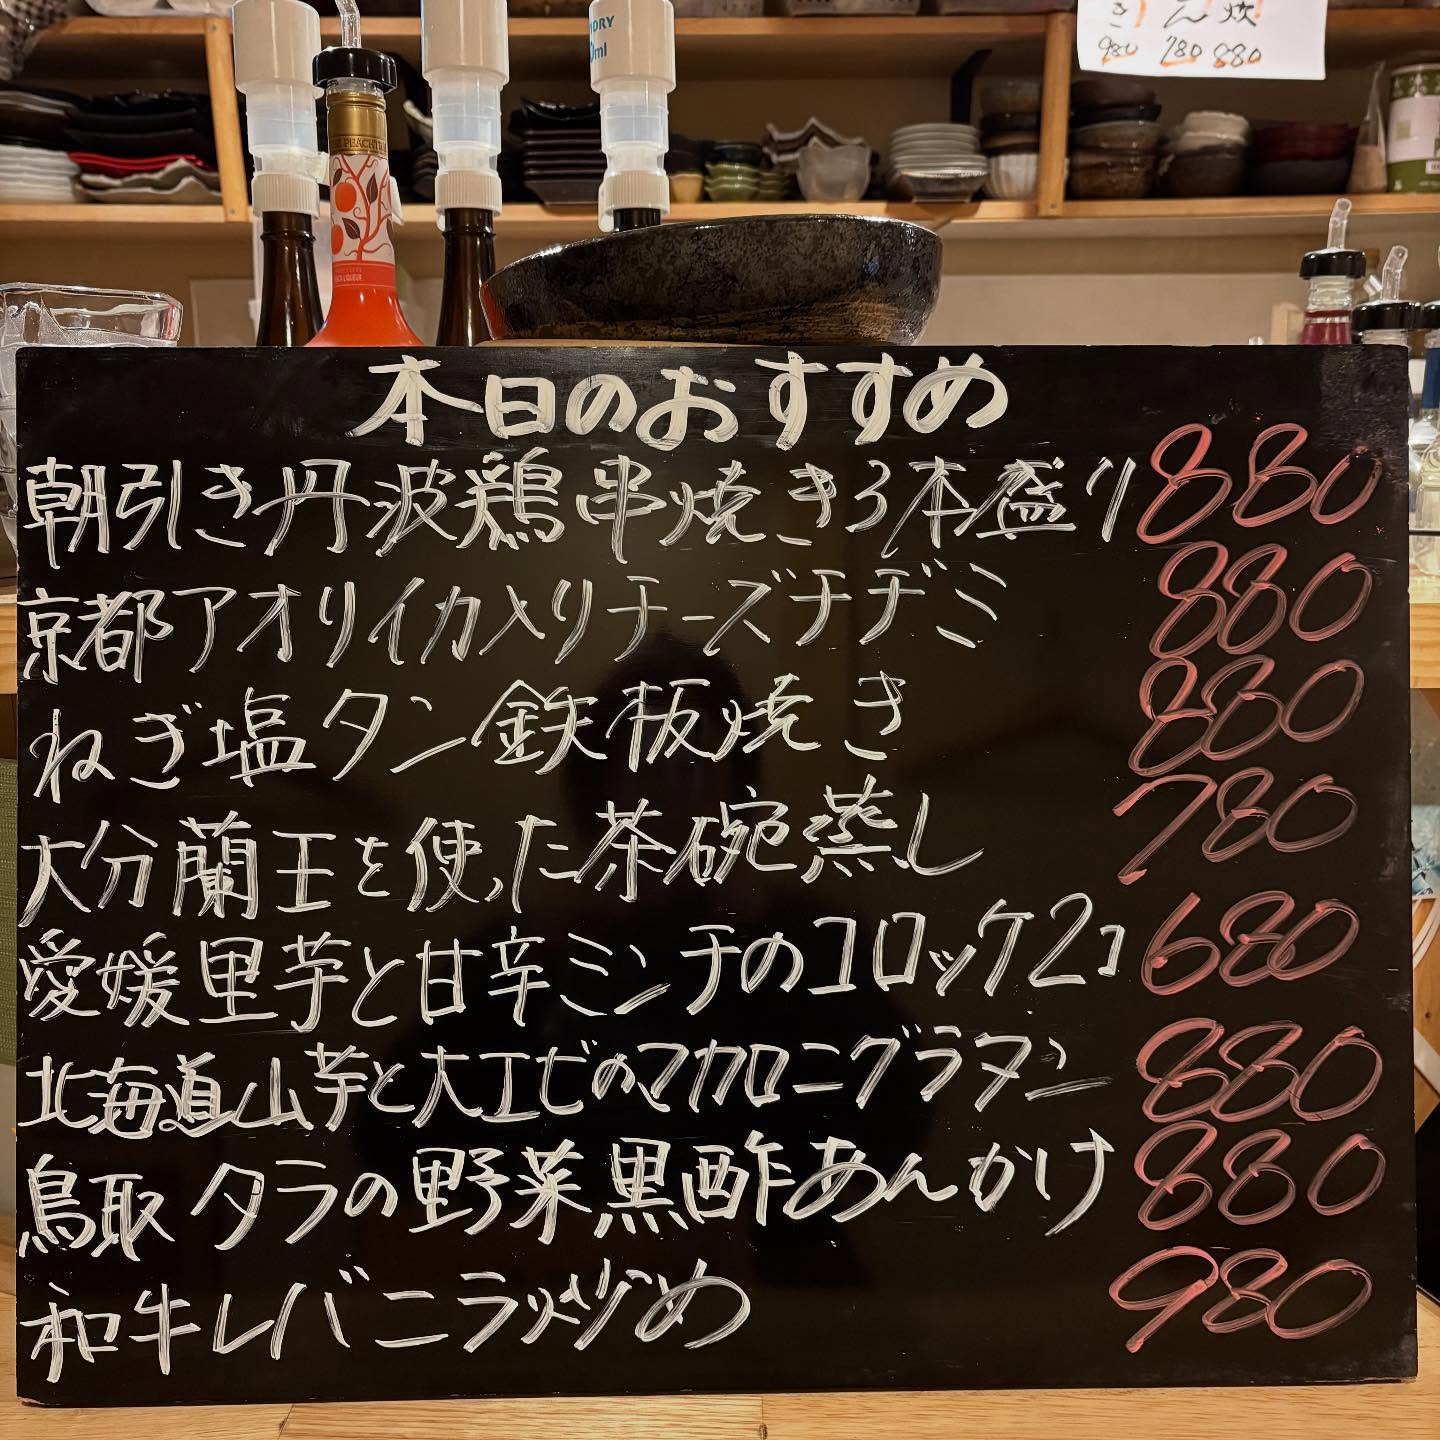 き ん 炊
980 780 880
本日のおすすめ
朝引き丹波鶏串焼き3本盛り 880
京都アオリイカ入りチーズチヂミ 880
ねぎ塩タン鉄板焼き 880
大分蘭王を使った茶碗蒸し 780
愛媛里芋と甘辛ミンチのコロッケ2コ 680
北海道山芋と大エビのマカロニグラタン 880
鳥取タラの野菜黒酢あんかけ 880
和牛レバニラ炒め 980